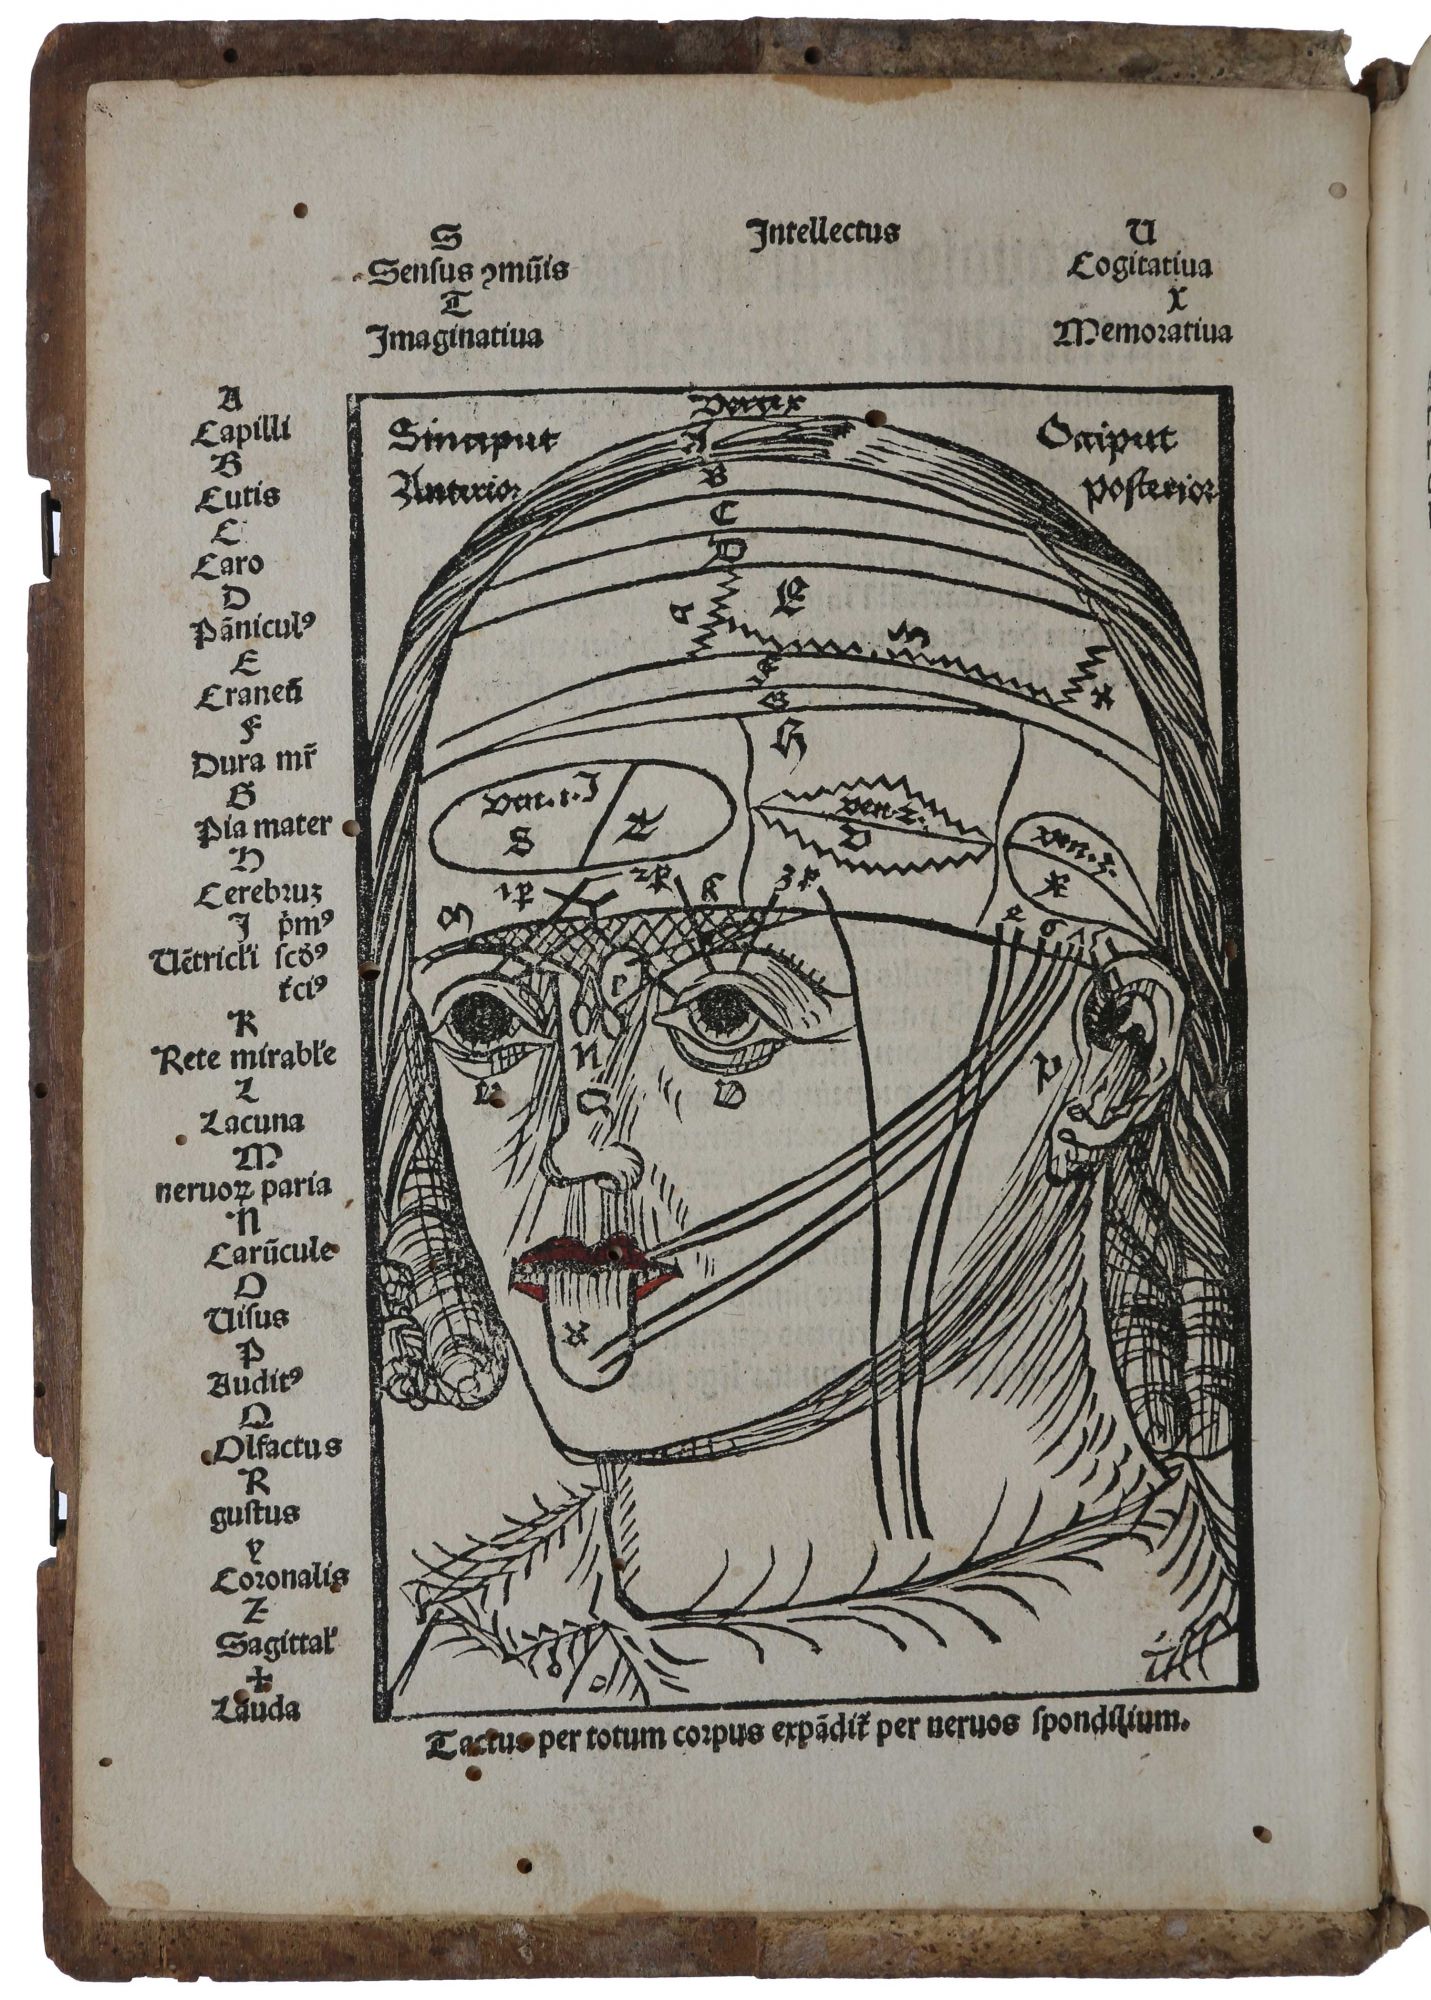 S
Sensus ꝯmūis
T
Imaginatiua
Intellectus
U
Cogitatiua
X
Memoratiua
A
Capilli
B
Cutis
C
Caro
D
Pāniculꝰ
E
Craneū
F
Dura mr̄
G
Pia mater
H
Cerebruꝫ
I p̄mꝰ
Uētricl̓i scd̓ꝰ
t̓ciꝰ
K
Rete mirabl̓e
L
Lacuna
M
neruoꝝ paria
N
Carūcule
O
Uisus
P
Auditꝰ
Q
Olfactus
R
gustus
Y
Coronalis
Z
Sagittal̓
+
Lauda
Vertex
Sinciput
Anterior
Occiput
posterior
A
B
C
D
E
F
G
H
ven. 1. I
S
T
ven. 2.
ven. 3.
1p
2p
K
3p
M
N
O
Q
P
Tactus per totum corpus expādit̓ per neruos spondilium.